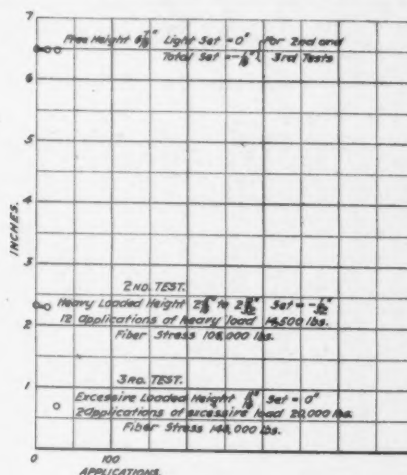 7
Free Height Light Set = 0" For 2nd and
Total Set = 3rd Tests
6
5
4
INCHES.
3
2ND. TEST.
Heavy Loaded Height to Set =
12 applications of heavy load 14,500 lbs.
2
Fiber Stress lbs.
3RD. TEST.
1
Excessire Loaded Height Set = 0"
2 applications of excessire load 20,000 lbs.
Fiber Stress lbs.
0
0 100
APPLICATIONS.